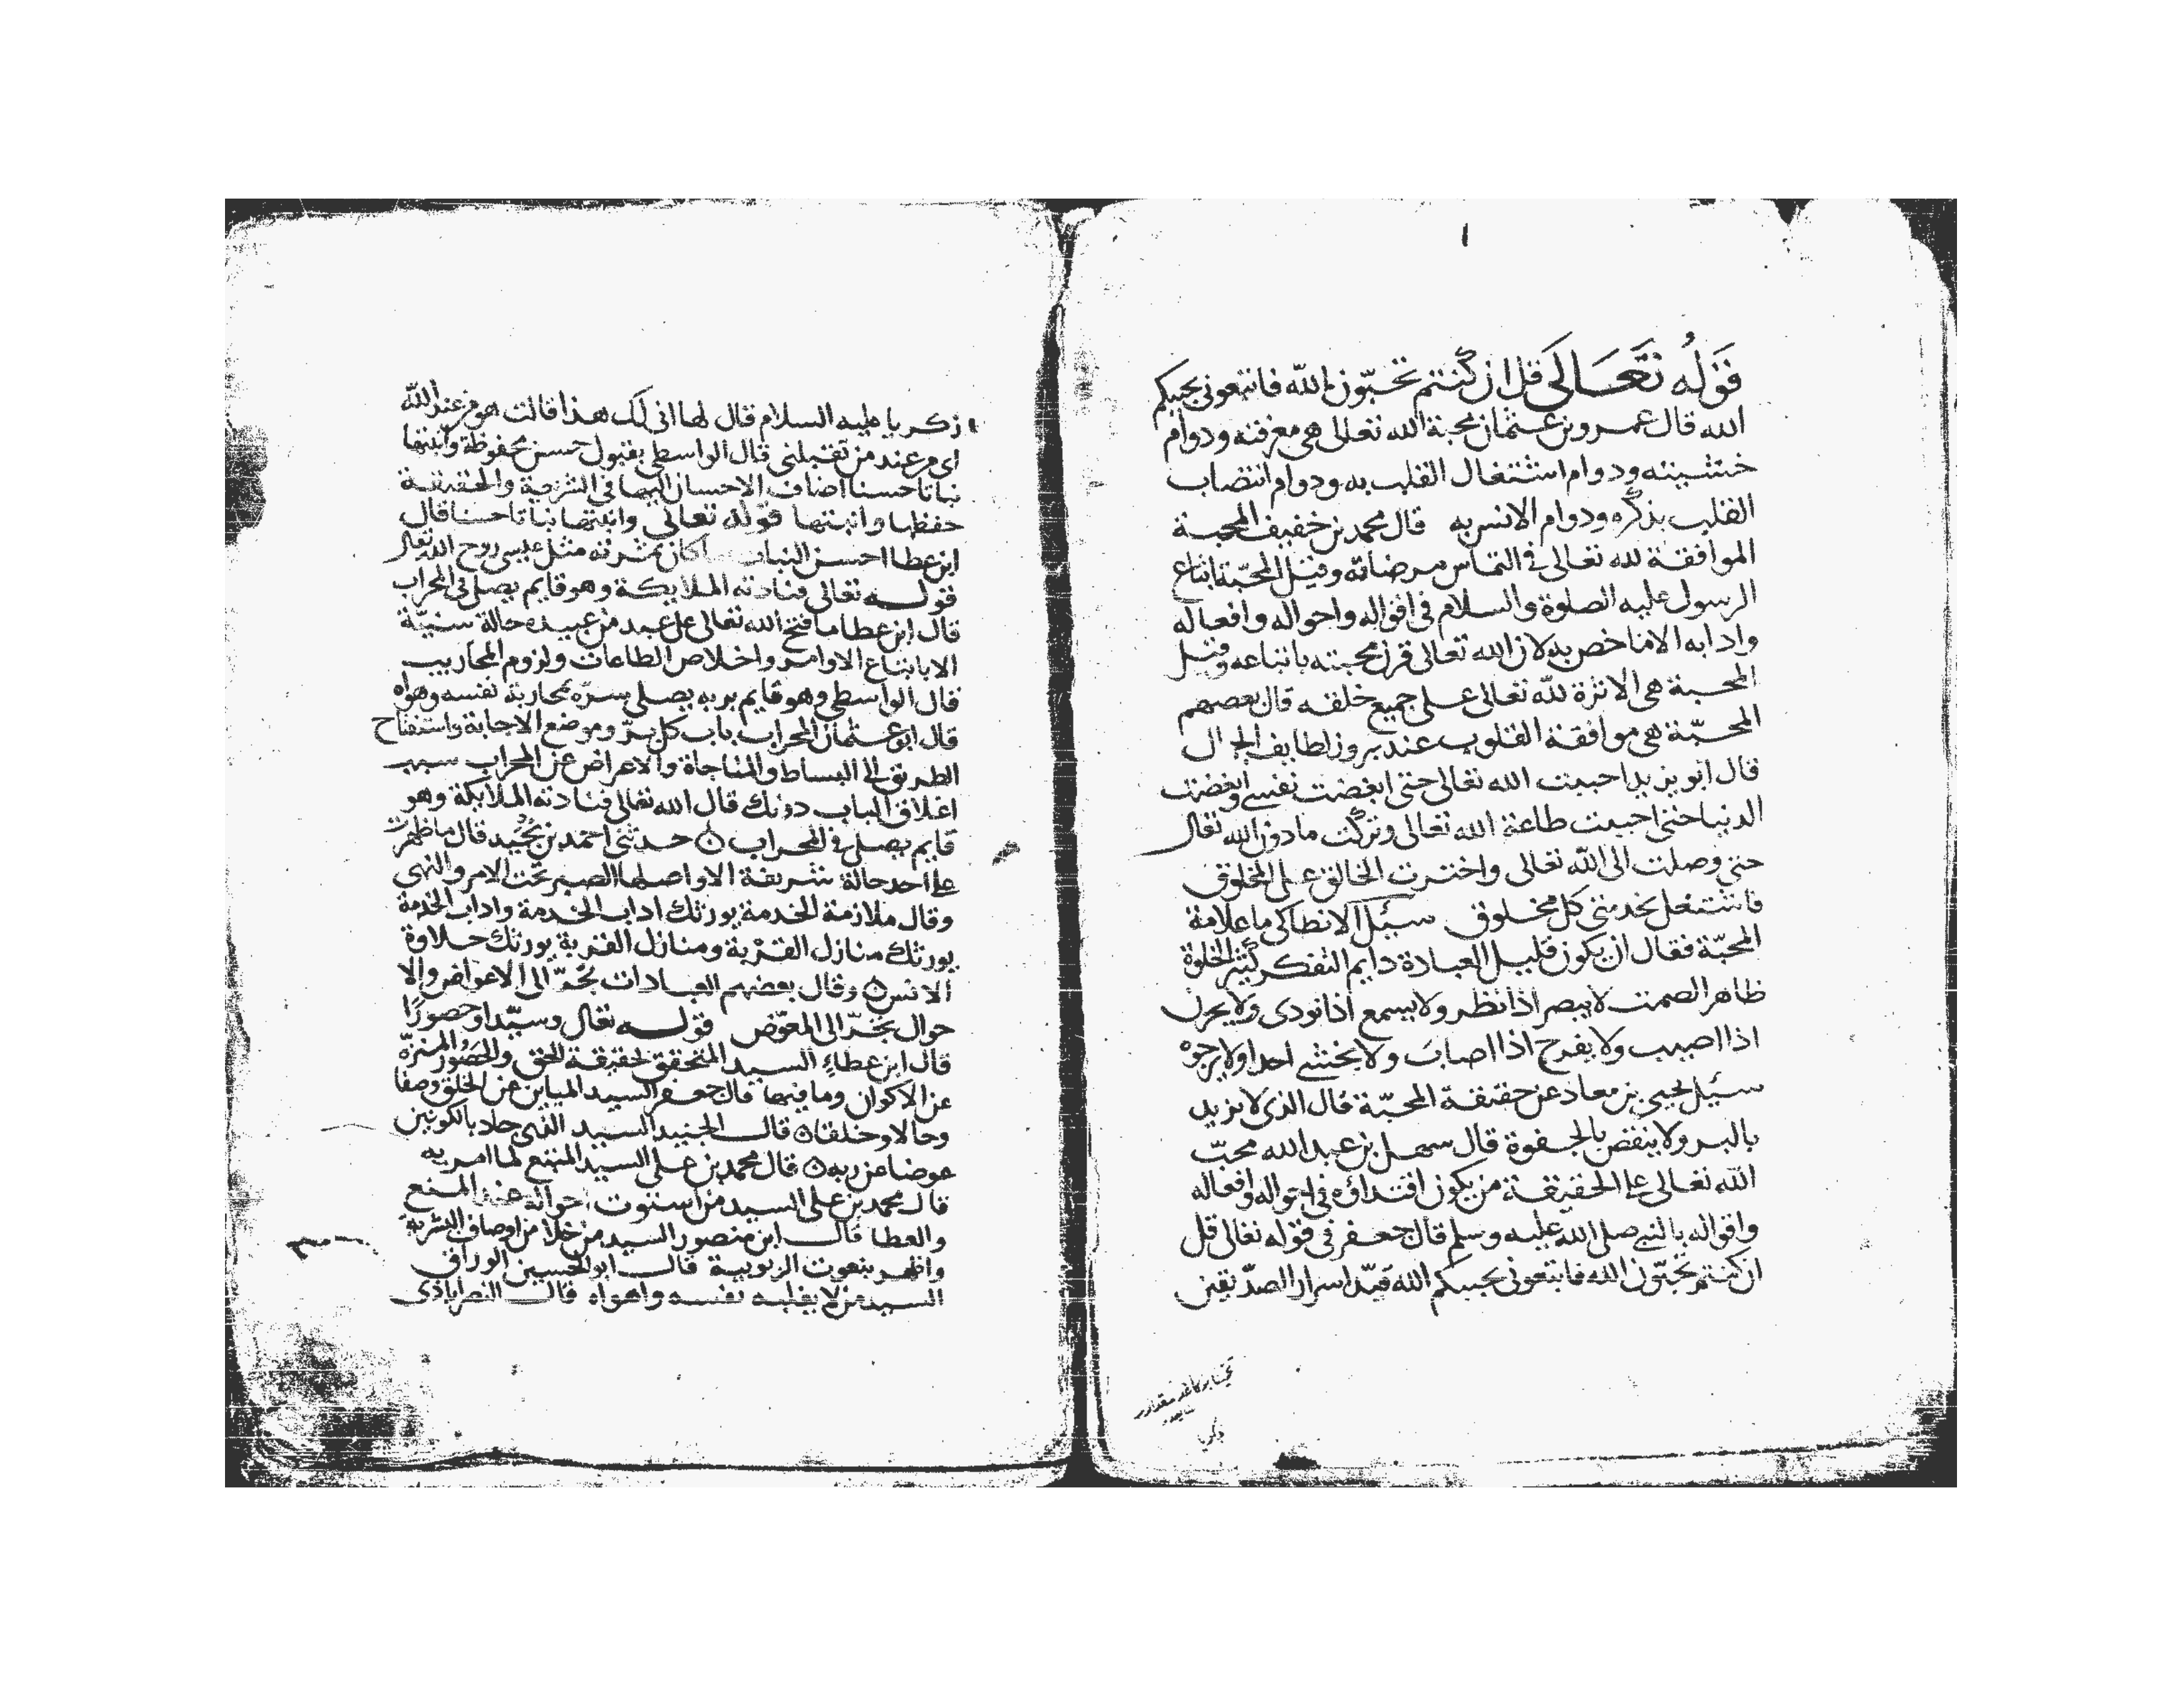 قَوْلُه تَعَالَى قل ان كنتم تحبّون الله فاتبعونى يحببكم
الله قال عمرو بن عثمان محبة الله تعالى هى معرفته ودوام
خشيته ودوام اشتغال القلب به ودوام انتصاب
القلب بذكره ودوام الانس به قال محمد بن خفيف المحبة
الموافقة لله تعالى فى التماس مرضاته وقيل المحبّة اتباع
الرسول عليه الصلوة والسلام فى اقواله واحواله وافعاله
وادابه الا ما خص به لان الله تعالى قرن محبته باتباعه وقيل
المحبة هى الاثرة لله تعالى على جميع خلقه قال بعضهم
المحبّة هى موافقة القلوب عند بروز لطايف الجمال
قال ابو يزيد احببت الله تعالى حتى ابغضت نفسى وابغضت
الدنيا حتى احببت طاعة الله تعالى وتركت ما دون الله تعالى
حتى وصلت الى الله تعالى واخترت الخالق على المخلوق
فاشتغل بخدمتى كل مخلوق سئل الانطاكى ما علامة
المحبّة فقال ان يكون قليل العبادة دايم التفكر كثير الخلوة
ظاهر الصمت لا يبصر اذا نظر ولا يسمع اذا نودى ولا يحزن
اذا اصيب ولا يفرح اذا اصاب ولا يخشى احدا ولا يرجوه
سئل يحيى بن معاذ عن حقيقة المحبّة قال الذى لا يزيد
بالبر ولا ينقص بالجفوة قال سهل بن عبد الله محبّ
الله تعالى على الحقيقة من يكون اقتداؤه فى احواله وافعاله
واقواله بالنبى صلى الله عليه وسلم قال جعفر فى قوله تعالى قل
ان كنتم تحبّون الله فاتبعونى يحببكم الله قيّد اسرار الصدّيقين
زكريا عليه السلام قال لها انى لك هذا قالت هو من عند الله
اى من عند من تقبلنى قال الواسطى بقبول حسن محفوظة وانبتها
نباتا حسنا اضاف الاحسان اليها فى الشريعة والحقيقة
حفظها وانبتها قوله تعالى وانبتها نباتا حسنا قال
ابن عطا احسن النبات ما كان ثمرته مثل عيسى روح الله تعالى
قوله تعالى فنادته الملايكة وهو قايم يصلى فى المحراب
قال ابن عطا ما فتح الله تعالى على عبد من عبيده حالة سنيّة
الا باتباع الاوامر واخلاص الطاعات ولزوم المحاريب
قال الواسطى وهو قايم بربه يصلى بسرّه محاربة نفسه وهواه
قال ابو عثمان المحراب باب كل برّ وموضع الاجابة واستفتاح
الطريق الى البساط والمناجاة والاعراض عن المحراب سبب
اغلاق الباب دونك قال الله تعالى فنادته الملايكة وهو
قايم يصلى فى المحراب حدثنى احمد بن نجيد قال ما ظهرت
على احد حالة شريفة الا واصلها الصبر تحت الامر والنهى
وقال ملازمة الخدمة يورثك اداب الخدمة واداب الخدمة
يورثك منازل القربة ومنازل القربة يورثك حلاوة
الانس وقال بعضهم العبادات تجرّ الى الاعواض والا
حوال تجرّ الى المعوّض قوله تعالى وسيّدا وحصورًا
قال ابن عطاء السيد المتحقق لحقيقة الحق والحصور المنزّه
عن الاكوان وما فيها قال جعفر السيد المباين عن الخلق وصفا
وحالا وخلقا قال الجنيد السيد الذى جاد بالكونين
عوضا عن ربه قال محمد بن على السيد المتبع لما امر به
قال محمد بن على السيد من استوت احواله عند المنع
والعطا قال ابن منصور السيد من خلا من اوصاف البشرية
واظهر بنعوت الربوبية قال ابو الحسين الوراق
السيد من لا يغلبه نفسه واهواه قال النصراباذى